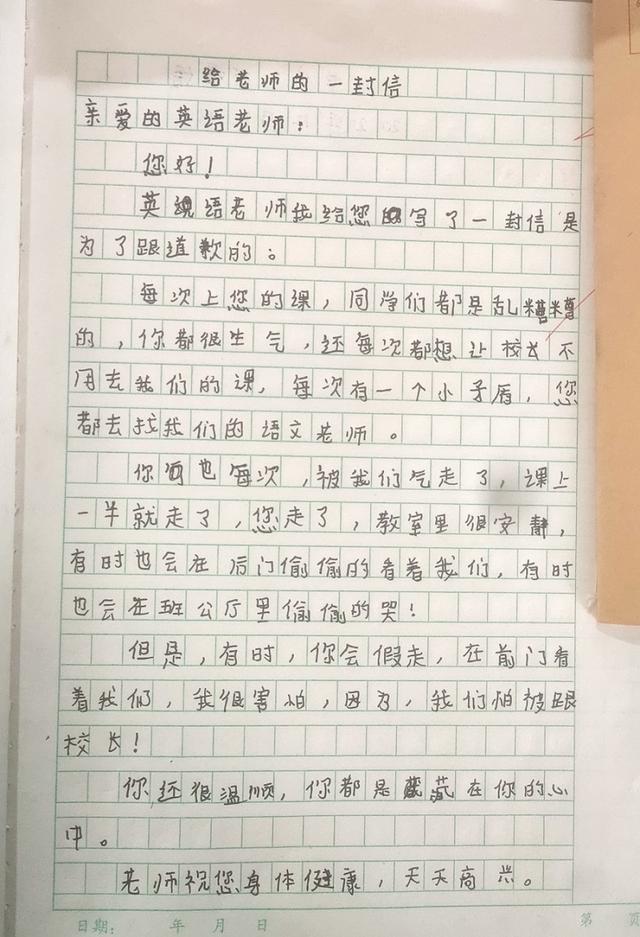 给老师的一封信
亲爱的英语老师:
您好!
英语老师我给您写了一封信是
为了跟道歉的。
每次上您的课,同学们都是乱糟糟
的,你都很生气,还每次都想让校长不
用去我们的课,每次有一个小矛盾,您
都去找我们的语文老师。
你也每次,被我们气走了,课上
一半就走了,您走了,教室里很安静,
有时也会在后门偷偷的看着我们,有时
也会在班公厅里偷偷的哭!
但是,有时,你会假走,在前门看
着我们,我很害怕,因为,我们怕被跟
校长!
你还很温顺,你都是藏在你的心
中。
老师祝您身体健康,天天高兴。
日期: 年 月 日
第 页